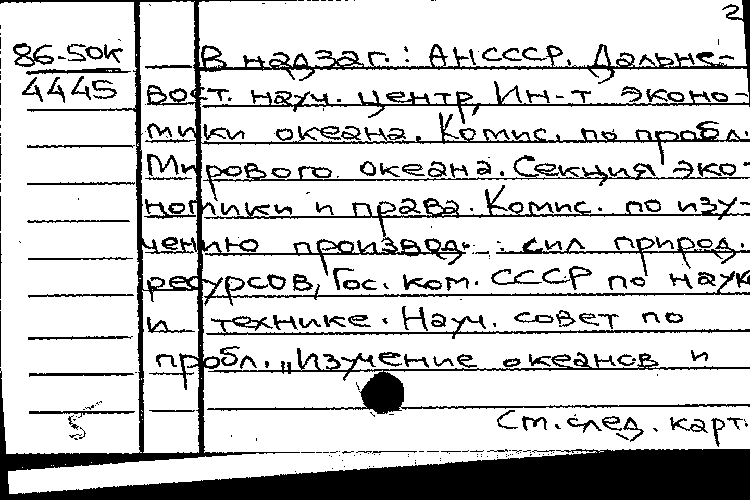 2
86-50к В надзаг.: АНСССР. Дальне-
4445 вост. науч. центр, Ин-т эконо-
мики океана. Комис. по пробл.
Мирового океана. Секция эко-
номики и права. Комис. по изу-
чению производ. сил природ.
ресурсов, Гос. ком. СССР по наук
и технике. Науч. совет по
пробл. „Изучение океанов и
5 См. след. карт.